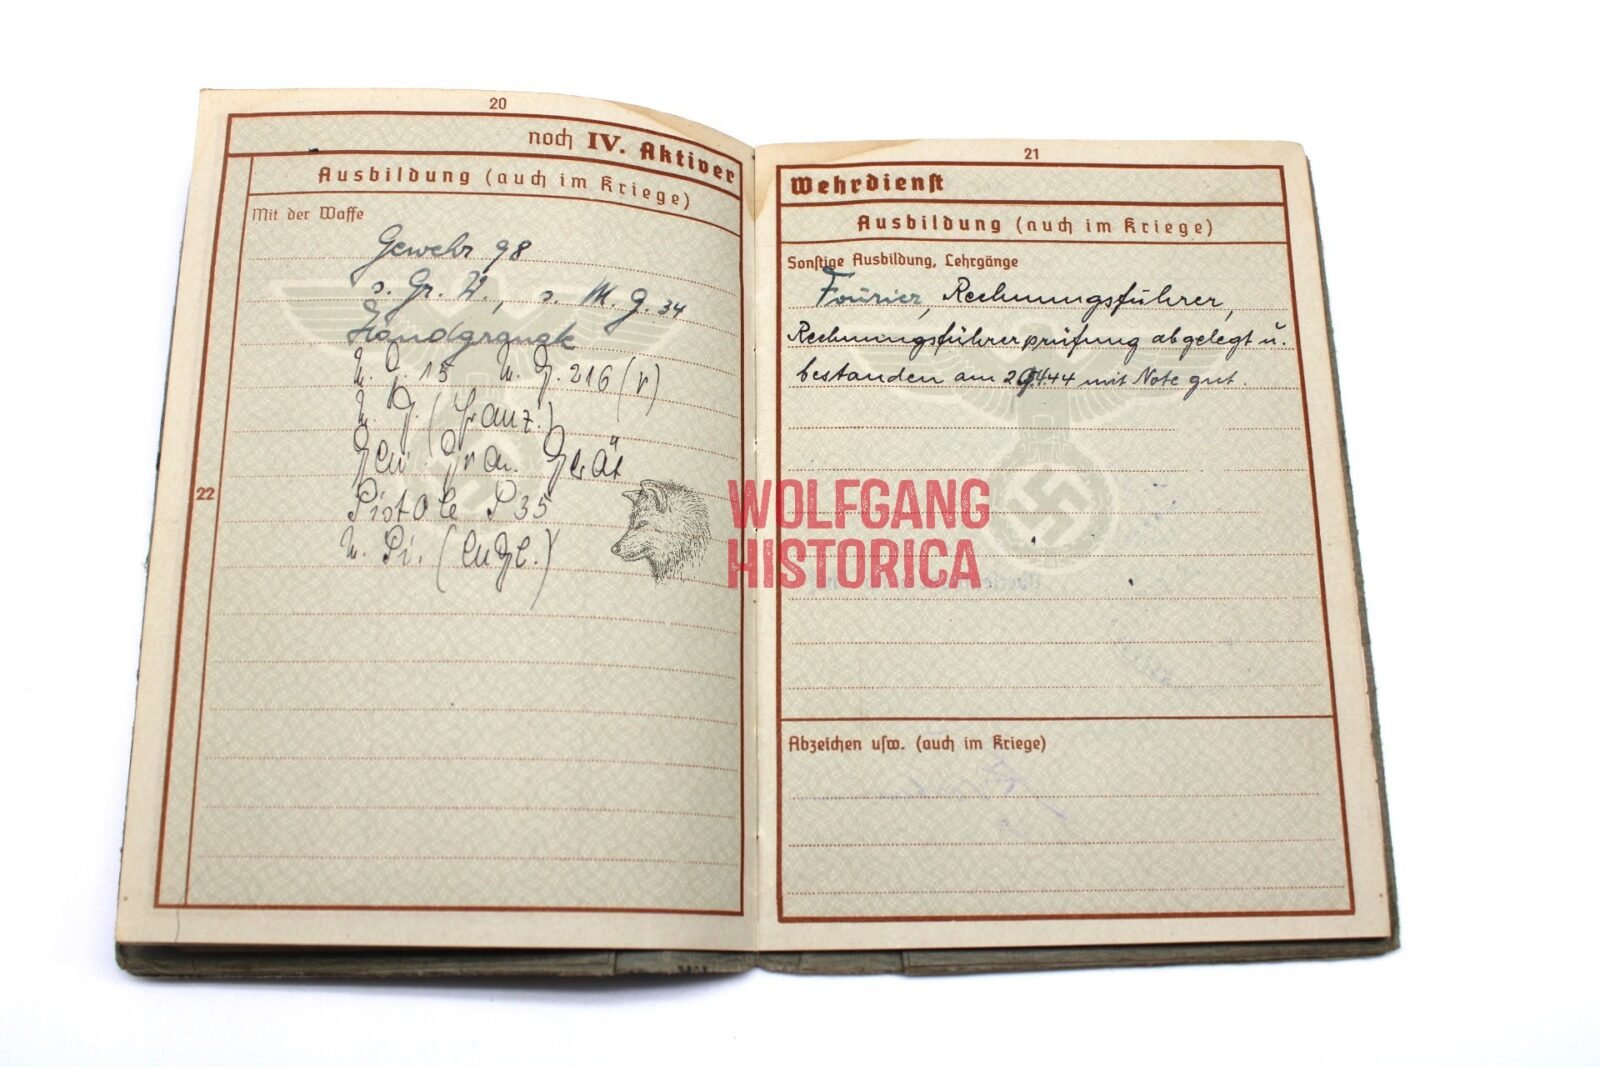 20
noch IV. Aktiver
Ausbildung (auch im Kriege)
Mit der Waffe
Gewehr 98
s. Gr. W., s. M. G. 34
Handgranate
M. G. 15 M. G. 216 (r)
M. G. (franz.)
Gew. Gran. Gerät
Pistole P 35
M. Pi. (engl.)
22
21
Wehrdienst
Ausbildung (auch im Kriege)
Sonstige Ausbildung, Lehrgänge
Fourier, Rechnungsführer,
Rechnungsführerprüfung abgelegt u.
bestanden am mit Note gut.
Abzeichen usw. (auch im Kriege)
WOLFGANG
HISTORICA